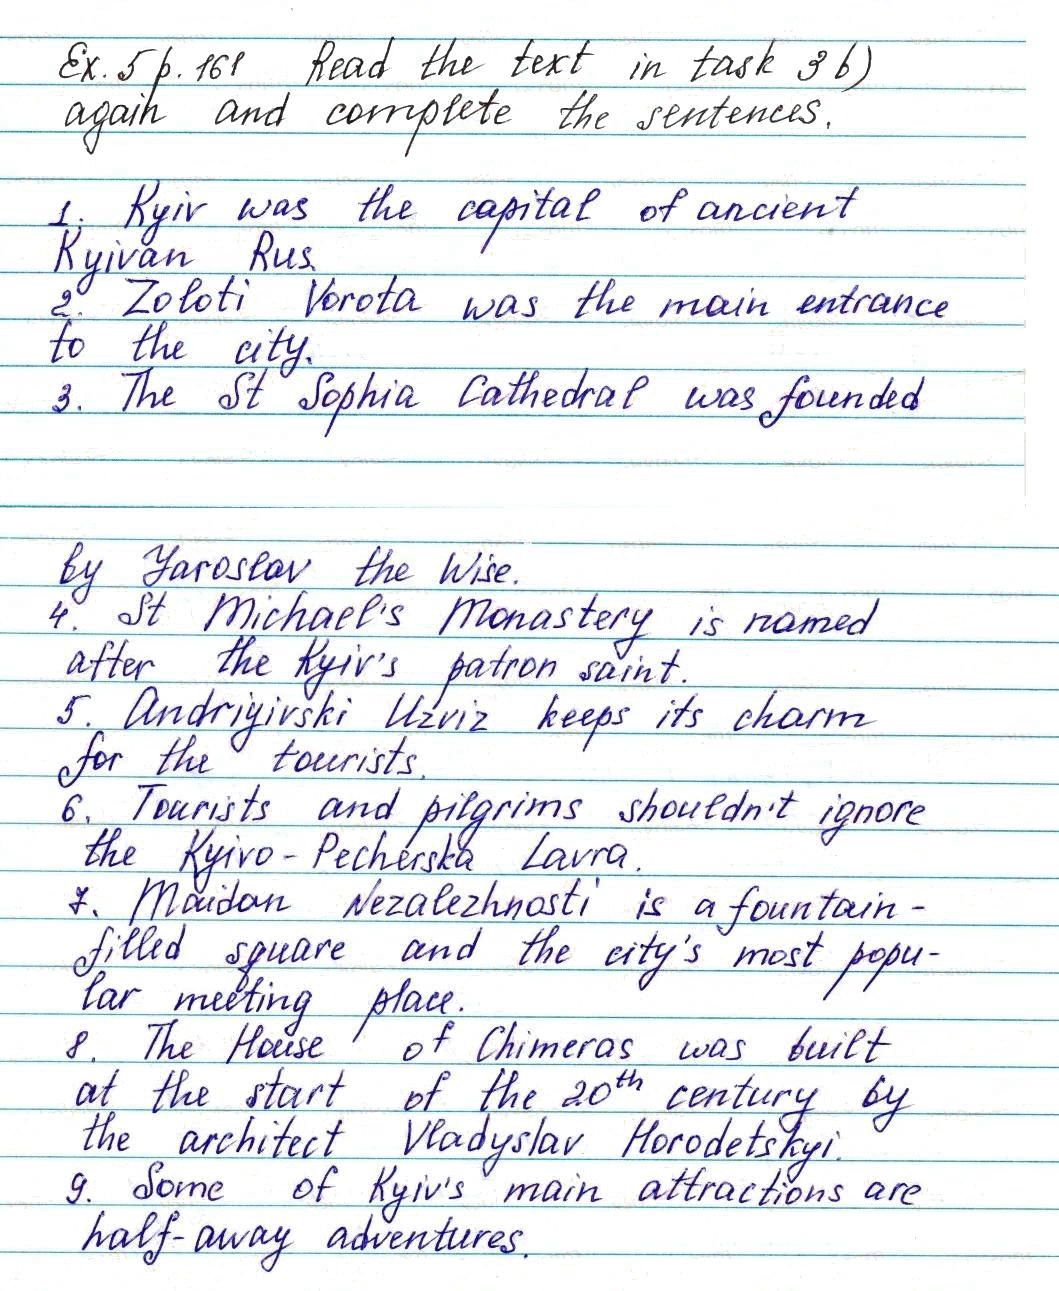 Ex. 5 p. 161 Read the text in task 3 b)
again and complete the sentences.
1. Kyiv was the capital of ancient
Kyivan Rus.
2. Zoloti Vorota was the main entrance
to the city.
3. The St Sophia Cathedral was founded
by Yaroslav the Wise.
4. St Michael's Monastery is named
after the Kyiv's patron saint.
5. Andriyivski Uzviz keeps its charm
for the tourists.
6. Tourists and pilgrims shouldn't ignore
the Kyivo-Pecherska Lavra.
7. Maidan Nezalezhnosti is a fountain-
filled square and the city's most popu-
lar meeting place.
8. The House of Chimeras was built
at the start of the 20th century by
the architect Vladyslav Horodetskyi.
9. Some of Kyiv's main attractions are
half-away adventures.